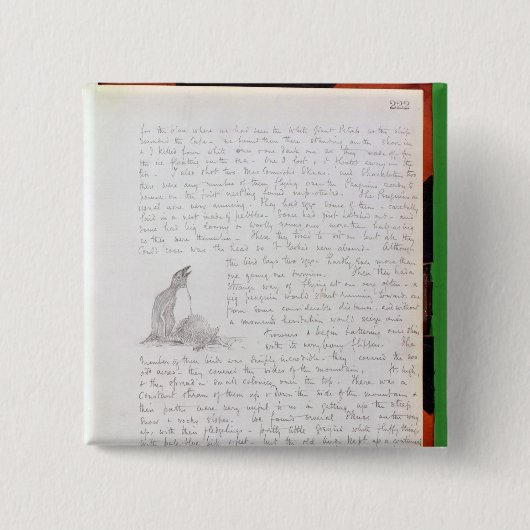 222
for the place where we had seen the White Giant Petrels as the ship
rounded the Cape - we found them there standing on the shore ice
& I killed four white ones & one dark one as they made off for
the ice floating in the sea. One I lost & it floated away in the
sea. I also shot two MacCormick's Skuas and Shackleton two
there were any number of them flying over the Penguins ready to
pounce on the first nestling found unprotected. The Penguins as
usual were very amusing. They had eggs some of them - carefully
laid in a nest made of pebbles. Some had just hatched out - and
some had big downy & woolly young ones more than half as big
as they were themselves. These they tried to sit on but all they
could cover was the head so it looked very absurd. Although
the bird lays two eggs hardly ever more than
one young one survives. Then they had a
strange way of flying at one very often - a
big penguin would start running towards one
from some considerable distance and without
a moments hesitation would seize one's
trousers & begin battering one's shins
with its very bony flipper. The
number of these birds was simply incredible - they covered the
acres - they covered the sides of the mountain,
& they spread in small colonies over the top. There was a
constant stream of them up & down the side of the mountain &
their paths were very useful to us in getting up the steep
snow & rocky slopes. We found several Skuas on the way
up, with their fledgelings - pretty little greyish white fluffy things
with pale blue bill & feet - but the old birds kept up a continual